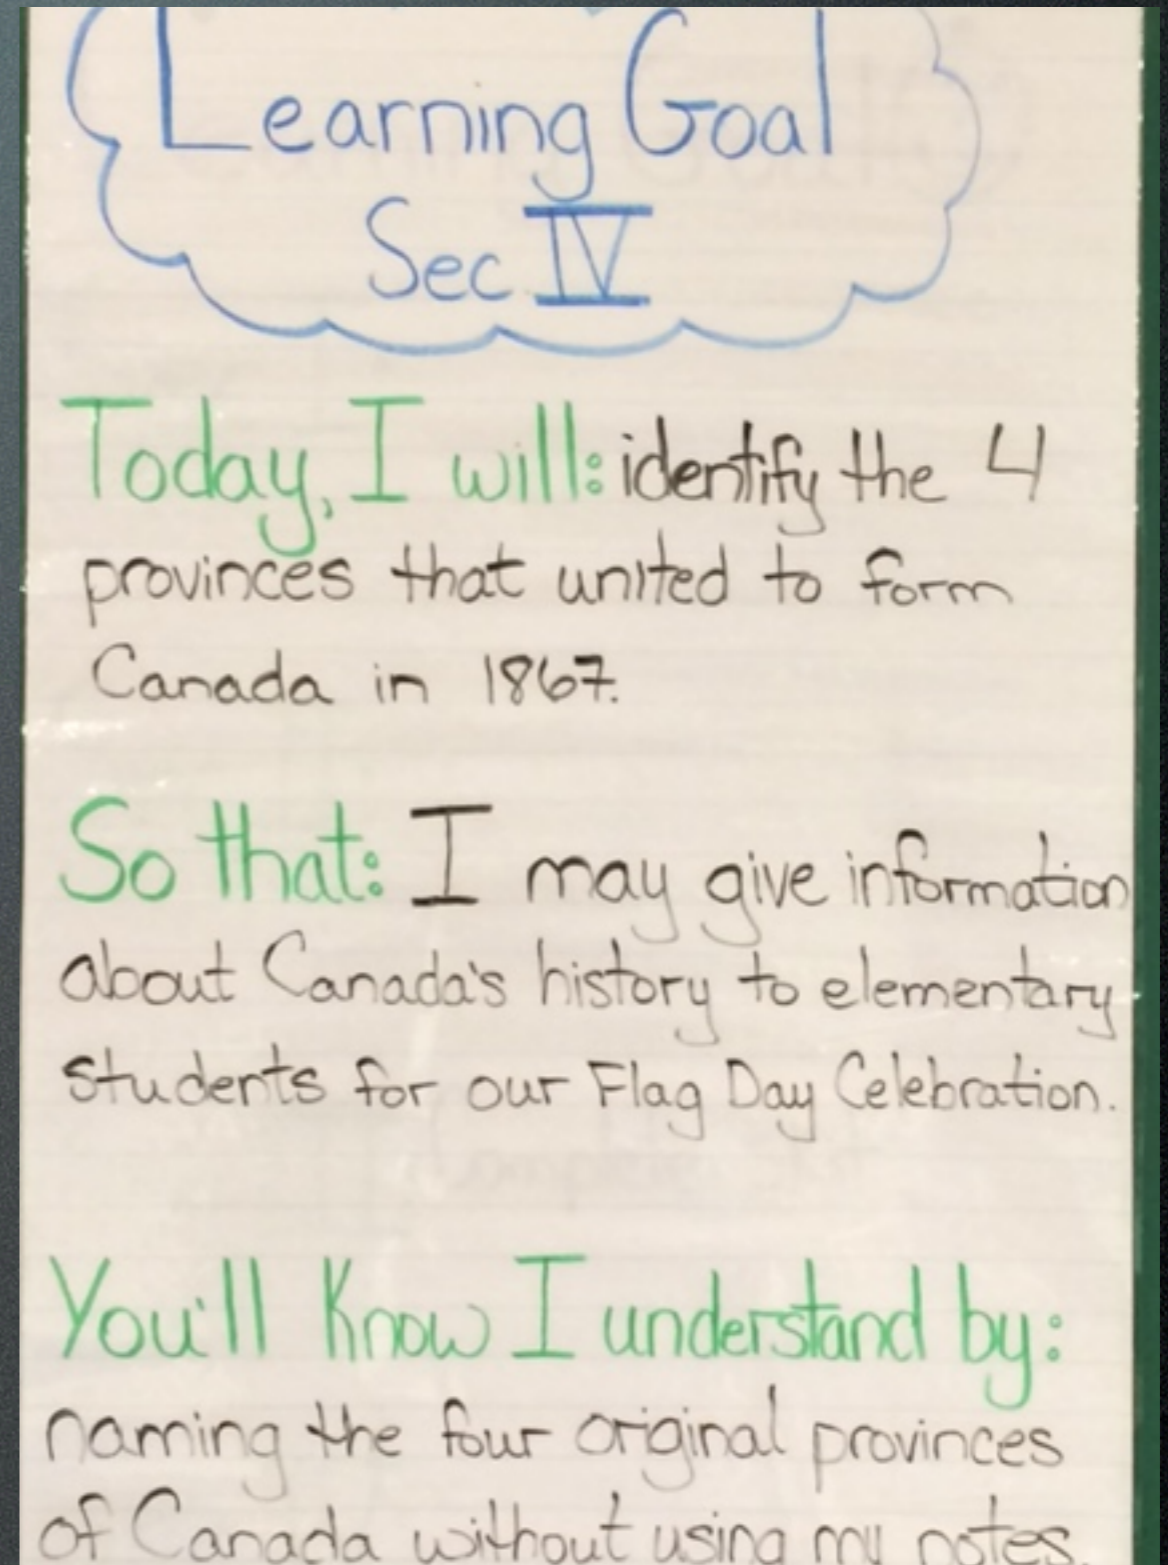 Learning Goal
Sec IV
Today, I will: identify the 4
provinces that united to form
Canada in 1867.
So that: I may give information
about Canada's history to elementary
students for our Flag Day Celebration.
You'll Know I understand by:
naming the four original provinces
of Canada without using my notes